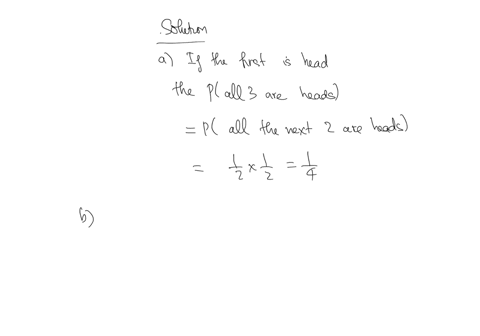 Solution
a) If the first is head
the P( all 3 are heads)
= P( all the next 2 are heads)
= 1/2 x 1/2 = 1/4
b)